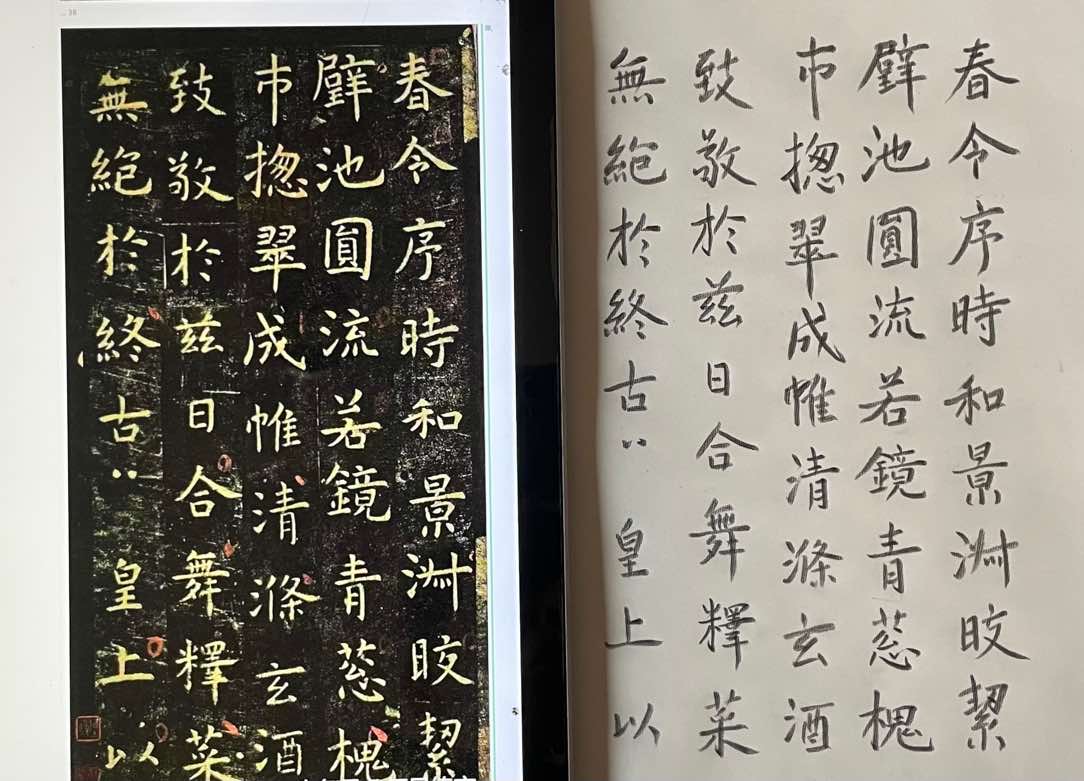 38
春令序時和景淑晈絜
璧池圓流若鏡青葱槐
市摠翠成帷清滌玄酒
致敬於兹日合舞釋菜
無絶於終古皇上以
春令序時和景淑晈絜
璧池圓流若鏡青葱槐
市摠翠成帷清滌玄酒
致敬於兹日合舞釋菜
無絶於終古皇上以